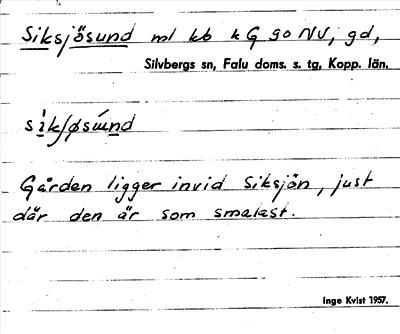 Siksjösund ml kb kG 90 NV, gd,
Silvbergs sn, Falu doms. s. tg, Kopp. län.
Gården ligger invid Siksjön, just
där den är som smalast.
Inge Kvist 1957.